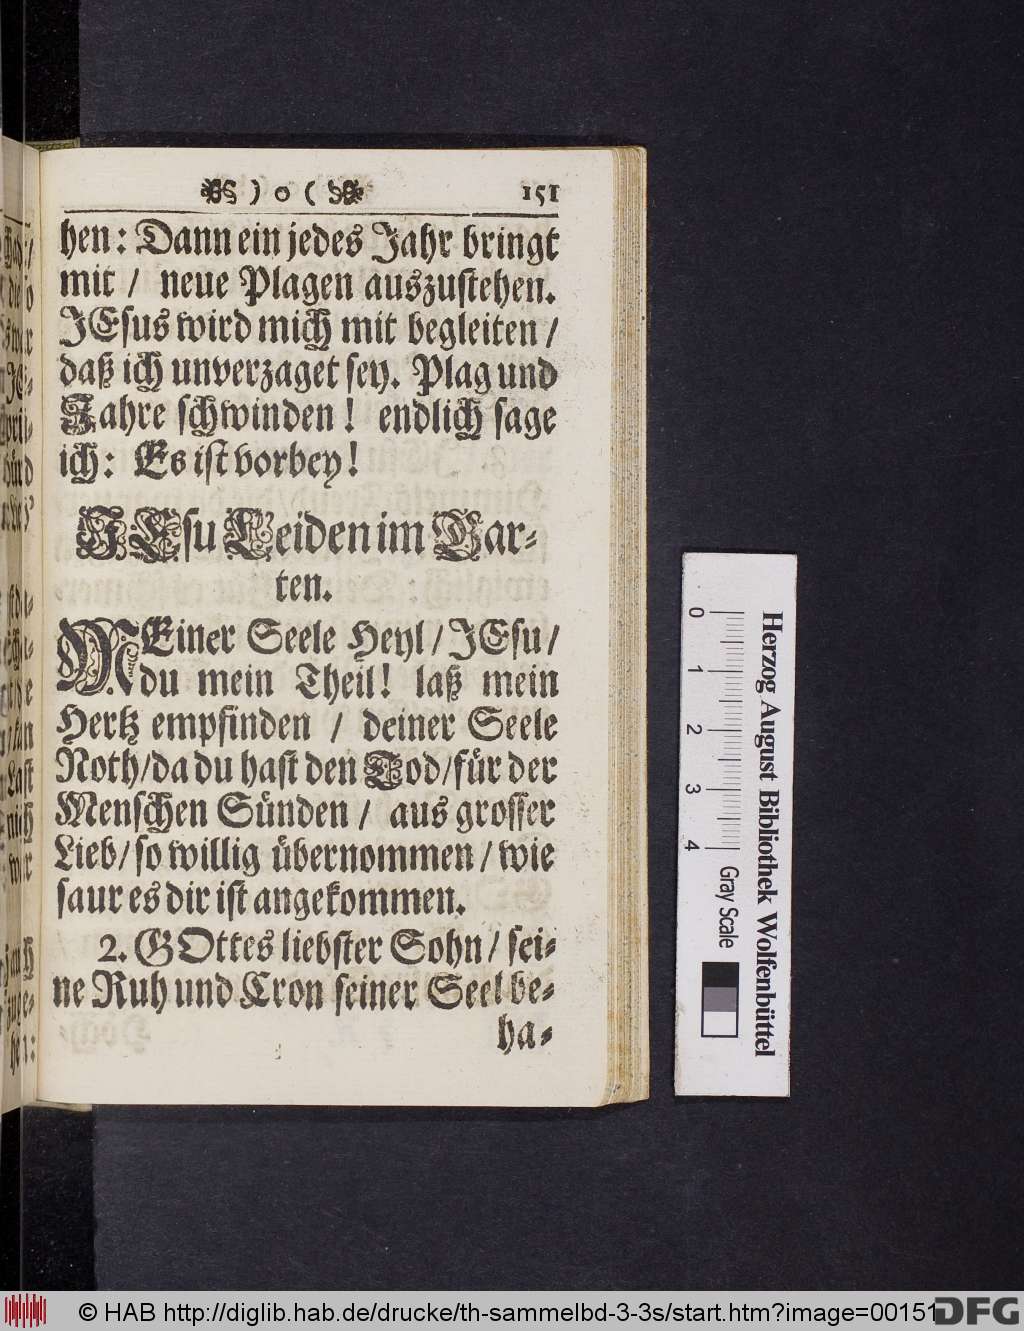 ) o ( 151
hen: Dann ein jedes Jahr bringt
mit / neue Plagen auszustehen.
JEsus wird mich mit begleiten /
daß ich unverzaget sey. Plag und
Jahre schwinden! endlich sage
ich: Es ist vorbey!
JEsu Leiden im Gar-
ten.
MEiner Seele Heyl / JEsu /
du mein Theil! laß mein
Hertz empfinden / deiner Seele
Noth/da du hast den Tod/für der
Menschen Sünden / aus grosser
Lieb/so willig übernommen/wie
saur es dir ist angekommen.
2. GOttes liebster Sohn/ sei-
ne Ruh und Cron seiner Seel be-
ha-
0 1 2 3 4
Herzog August Bibliothek Wolfenbüttel
Gray Scale
© HAB http://diglib.hab.de/drucke/th-sammelbd-3-3s/start.htm?image=00151
DFG